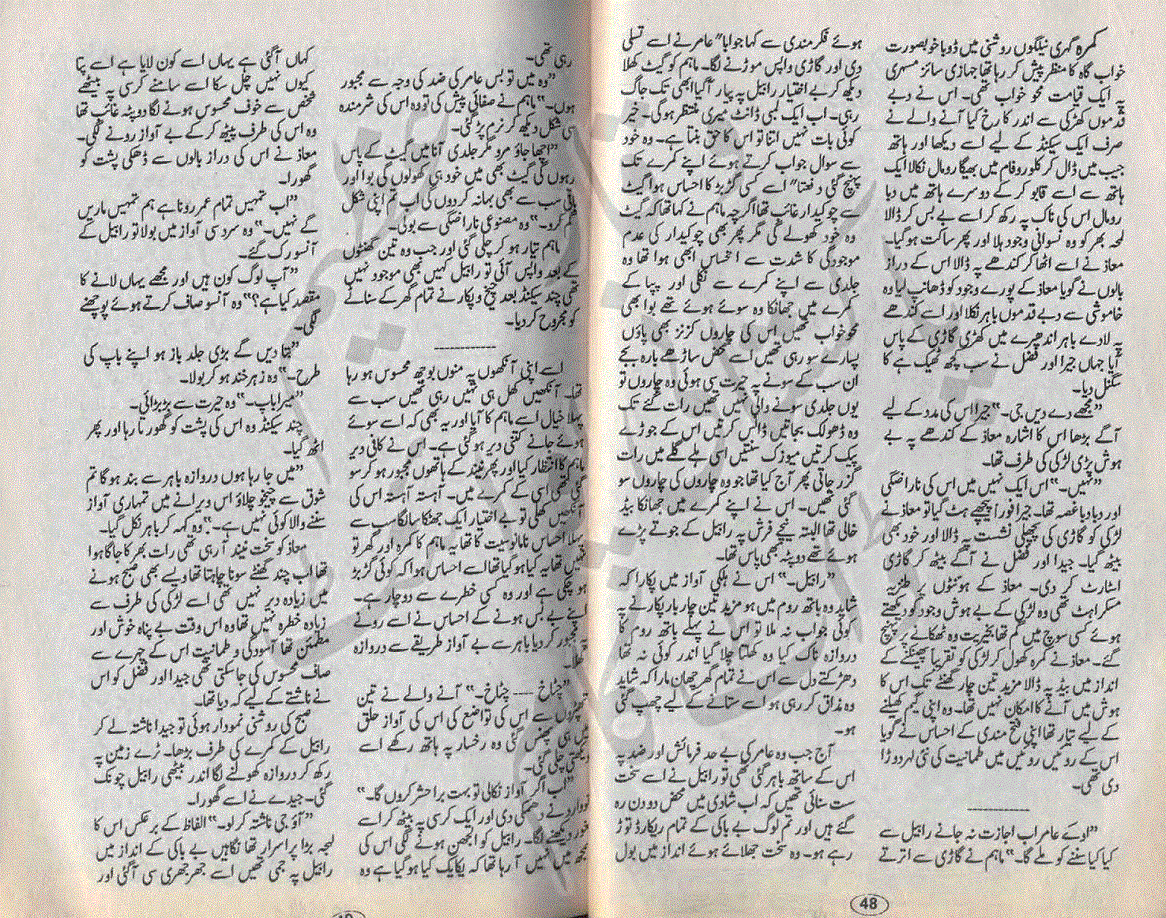 کمرہ گہری نیلگوں روشنی میں ڈوبا خوبصورت
خواب گاہ کا منظر پیش کر رہا تھا جہازی سائز مسہری
پہ ایک قیامت محو خواب تھی۔ اس نے دبے
قدموں کھڑکی سے اندر کا رخ کیا آنے والے نے
صرف ایک سیکنڈ کے لیے اسے دیکھا اور ہاتھ
جیب میں ڈال کر کلوروفام میں بھیگا رومال نکالا ایک
ہاتھ سے اسے قابو کر کے دوسرے ہاتھ میں دبا
رومال اس کی ناک پہ رکھ کر اسے بے بس کر ڈالا
لمحہ بھر کو وہ نسوانی وجود ہلا اور پھر ساکت ہو گیا۔
معاذ نے اسے اٹھا کر کندھے پہ ڈالا اس کے دراز
بالوں نے گویا معاذ کے پورے وجود کو ڈھانپ لیا وہ
خاموشی سے دبے قدموں باہر نکلا اور اسے کندھے
پہ لادے باہر اندھیرے میں کھڑی گاڑی کے پاس
آیا جہاں جیرا اور فضل نے سب کچھ ٹھیک ہے کا
سگنل دیا۔
”مجھے دے دیں جی۔“ جیرا اس کی مدد کے لیے
آگے بڑھا اس کا اشارہ معاذ کے کندھے پہ بے
ہوش پڑی لڑکی کی طرف تھا۔
”نہیں۔“ اس ایک نہیں میں اس کی ناراضگی
اور دبا دبا غصہ تھا۔ جیرا فوراً پیچھے ہٹ گیا تو معاذ نے
لڑکی کو گاڑی کی پچھلی نشست پہ ڈالا اور خود بھی
بیٹھ گیا۔ جیدا اور فضل نے آگے بیٹھ کر گاڑی
اسٹارٹ کر دی۔ معاذ کے ہونٹوں پہ طنزیہ
مسکراہٹ تھی وہ لڑکی کے بے ہوش وجود کو دیکھتے
ہوئے کسی سوچ میں گم تھا بخیریت وہ ٹھکانے پر پہنچ
گئے۔ معاذ نے کمرہ کھول کر لڑکی کو تقریباً پھینکنے کے
انداز میں بیڈ پہ ڈالا مزید تین چار گھنٹے تک اس کا
ہوش میں آنے کا امکان نہیں تھا۔ وہ اپنی گیم کھیلنے
کے لیے تیار تھا اپنی فتح مندی کے احساس نے گویا
اس کے روئیں روئیں میں طمانیت کی نئی لہر دوڑا
دی تھی۔
”اوکے عامر اب اجازت نہ جانے رابیل سے
کیا کیا سننے کو ملے گا۔“ ماہم نے گاڑی سے اترتے
ہوئے فکر مندی سے کہا جواباً عامر نے اسے تسلی
دی اور گاڑی واپس موڑنے لگا۔ ماہم کو گیٹ کھلا
دیکھ کر بے اختیار رابیل پہ پیار آگیا ابھی تک جاگ
رہی۔ اب ایک لمبی ڈانٹ میری منتظر ہو گی۔ خیر
کوئی بات نہیں اتنا تو اس کا حق بنتا ہے۔ وہ خود
سے سوال جواب کرتے ہوئے اپنے کمرے تک
پہنچ گئی دفعتاً اسے کسی گڑبڑ کا احساس ہوا گیٹ
سے چوکیدار غائب تھا اگرچہ ماہم نے کہا تھا کہ گیٹ
وہ خود کھولے گی مگر پھر بھی چوکیدار کی عدم
موجودگی کا شدت سے احساس ابھی ہوا تھا وہ
جلدی سے اپنے کمرے سے نکلی اور پپا کے
کمرے میں جھانکا وہ سوئے ہوئے تھے بوا بھی
محو خواب تھیں اس کی چاروں کزنز بھی پاؤں
پسارے سو رہی تھیں اسے محض ساڑھے بارہ بجے
ان سب کے سونے پہ حیرت سی ہوئی وہ چاروں تو
یوں جلدی سونے والی نہیں تھیں رات گئے تک
وہ ڈھولک بجاتیں ڈانس کرتیں اس کے جوڑے
پیک کرتیں میوزک سنتیں اسی ہلے گلے میں رات
گزر جاتی پھر آج کیا تھا جو وہ چاروں کی چاروں سو
گئی تھیں۔ اس نے اپنے کمرے میں جھانکا بیڈ
خالی تھا البتہ نیچے فرش پہ رابیل کے جوتے پڑے
ہوئے تھے دوپٹہ بھی پاس تھا۔
”رابیل۔“ اس نے ہلکی آواز میں پکارا کہ
شاید وہ باتھ روم میں ہو مزید تین چار بار پکارنے پہ
کوئی جواب نہ ملا تو اس نے پہلے باتھ روم کا
دروازہ ناک کیا وہ کھلتا چلا گیا اندر کوئی نہ تھا
دھڑکتے دل سے اس نے تمام گھر چھان مارا کہ شاید
وہ مذاق کر رہی ہو اسے ستانے کے لیے چھپ گئی
ہو۔
آج جب وہ عامر کی بے حد فرمائش اور ضد پہ
اس کے ساتھ باہر گئی تھی تو رابیل نے اسے سخت
ست سنائی تھیں کہ اب شادی میں محض دو دن رہ
گئے ہیں اور تم لوگ بے باکی کے تمام ریکارڈ توڑ
رہے ہو۔ وہ سخت جھلائے ہوئے انداز میں بول
48
رہی تھی۔
”وہ میں تو بس عامر کی ضد کی وجہ سے مجبور
ہوں۔“ ماہم نے صفائی پیش کی تو وہ اس کی شرمندہ
سی شکل دیکھ کر نرم پڑ گئی۔
”اچھا جاؤ مرو مگر جلدی آنا میں گیٹ کے پاس
رہوں گی گیٹ بھی میں خود ہی کھولوں گی بوا اور
باقی سب سے بھی بہانہ کر دوں گی اب تم اپنی شکل
گم کرو۔“ وہ مصنوعی ناراضگی سے بولی۔
ماہم تیار ہو کر چلی گئی اور جب وہ تین گھنٹوں
کے بعد واپس آئی تو رابیل کہیں بھی موجود نہیں
تھی چند سیکنڈ بعد چیخ و پکار نے تمام گھر کے سناٹے
کو مجروح کر دیا۔
اسے اپنی آنکھوں پہ منوں بوجھ محسوس ہو رہا
تھا۔ آنکھیں کھل ہی نہیں رہی تھیں سب سے
پہلا خیال اسے ماہم کا آیا اور یہ بھی کہ اسے سوئے
ہوئے جانے کتنی دیر ہو گئی ہے۔ اس نے کافی دیر
ماہم کا انتظار کیا اور پھر نیند کے ہاتھوں مجبور ہو کر سو
گئی تھی اسی کے کمرے میں۔ آہستہ آہستہ اس کی
آنکھیں کھلی تو بے اختیار ایک جھٹکا سا لگا سب سے
پہلا احساس نامانوسیت کا تھا یہ ماہم کا کمرہ اور گھر تو
نہیں تھا یہ کیا ہو گیا تھا اسے احساس ہوا کہ کوئی گڑبڑ
ہو چکی ہے اور وہ کسی خطرے سے دوچار ہے۔
اپنے بے بس ہونے کے احساس نے اسے رونے
پہ مجبور کر دیا باہر سے بے آواز طریقے سے دروازہ
کھلا۔
”چٹاخ ---- چٹاخ۔“ آنے والے نے تین
تھپڑوں سے اس کی تواضع کی اس کی آواز حلق
میں ہی پھنس گئی وہ رخسار پہ ہاتھ رکھے اسے
دیکھتی چلی گئی۔
”اب اگر آواز نکالی تو بہت برا حشر کروں گا۔“
نووارد نے دھمکی دی اور ایک کرسی پہ بیٹھ کر اسے
غور دیکھنے لگا۔ رابیل کو الجھن ہونے لگی اس کی
سمجھ میں نہیں آرہا تھا کہ یکایک کیا ہو گیا ہے وہ
کہاں آگئی ہے یہاں اسے کون لایا ہے اسے پتا
کیوں نہیں چل سکا اسے سامنے کرسی پہ بیٹھے
شخص سے خوف محسوس ہونے لگا دوپٹہ غائب تھا
وہ اس کی طرف پیٹھ کر کے بے آواز رونے لگی۔
معاذ نے اس کی دراز بالوں سے ڈھکی پشت کو
گھورا۔
”اب تمہیں تمام عمر رونا ہے ہم تمہیں ماریں
گے نہیں۔“ وہ سرد سی آواز میں بولا تو رابیل کے
آنسو رک گئے۔
”آپ لوگ کون ہیں اور مجھے یہاں لانے کا
مقصد کیا ہے؟“ وہ آنسو صاف کرتے ہوئے پوچھنے
لگی۔
”بتا دیں گے بڑی جلد باز ہو اپنے باپ کی
طرح۔“ وہ زہر خند ہو کر بولا۔
”میرا باپ۔“ وہ حیرت سے بڑبڑائی۔
چند سیکنڈ وہ اس کی پشت کو گھورتا رہا اور پھر
اٹھ گیا۔
”میں جا رہا ہوں دروازہ باہر سے بند ہو گا تم
شوق سے چیخو چلاؤ اس ویرانے میں تمہاری آواز
سننے والا کوئی نہیں ہے۔“ وہ کہہ کر باہر نکل گیا۔
معاذ کو سخت نیند آرہی تھی رات بھر کا جاگا ہوا
تھا اب چند گھنٹے سونا چاہتا تھا ویسے بھی صبح ہونے
میں زیادہ دیر نہیں تھی اسے لڑکی کی طرف سے
زیادہ خطرہ نہیں تھا وہ اس وقت بے پناہ خوش اور
مطمئن تھا آسودگی و طمانیت اس کے چہرے سے
صاف محسوس کی جا سکتی تھی جیدا اور فضل کو اس
نے ناشتے کے لیے کہہ دیا تھا۔
صبح کی روشنی نمودار ہوئی تو جیدا ناشتہ لے کر
رابیل کے کمرے کی طرف بڑھا۔ ٹرے زمین پہ
رکھ کر دروازہ کھولنے لگا اندر بیٹھی رابیل چونک
گئی۔ جیدے نے اسے گھورا۔
”آؤ جی ناشتہ کر لو۔“ الفاظ کے برعکس اس کا
لہجہ بڑا پر اسرار تھا نگاہیں بے باکی کے انداز میں
رابیل پہ جمی تھیں اسے جھرجھری سی آگئی اور